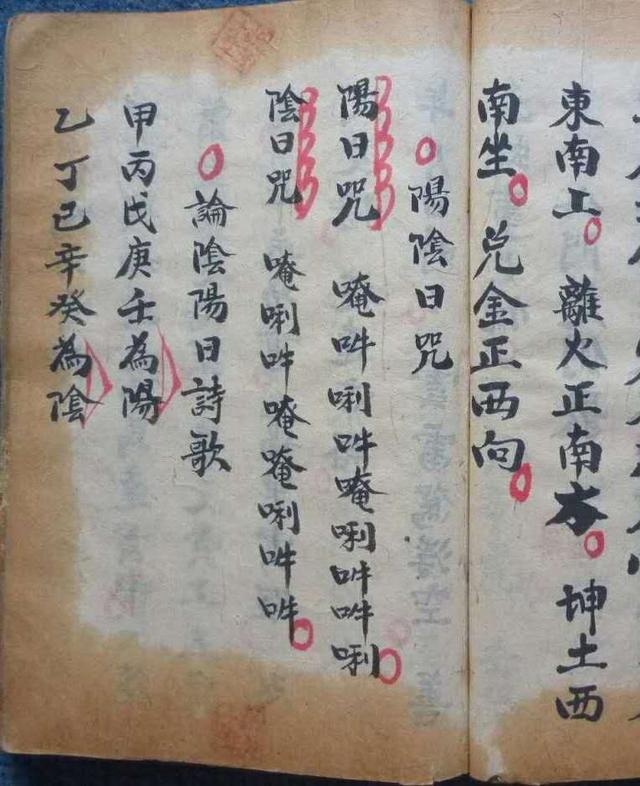 東南工。離火正南方。坤土西
南坐。兌金正西向。
陽陰日咒
陽日咒 唵吽唎吽唵唎吽吽唎
陰日咒 唵唎吽唵唵唎吽吽
論陰陽日詩歌
甲丙戊庚壬為陽
乙丁己辛癸為陰